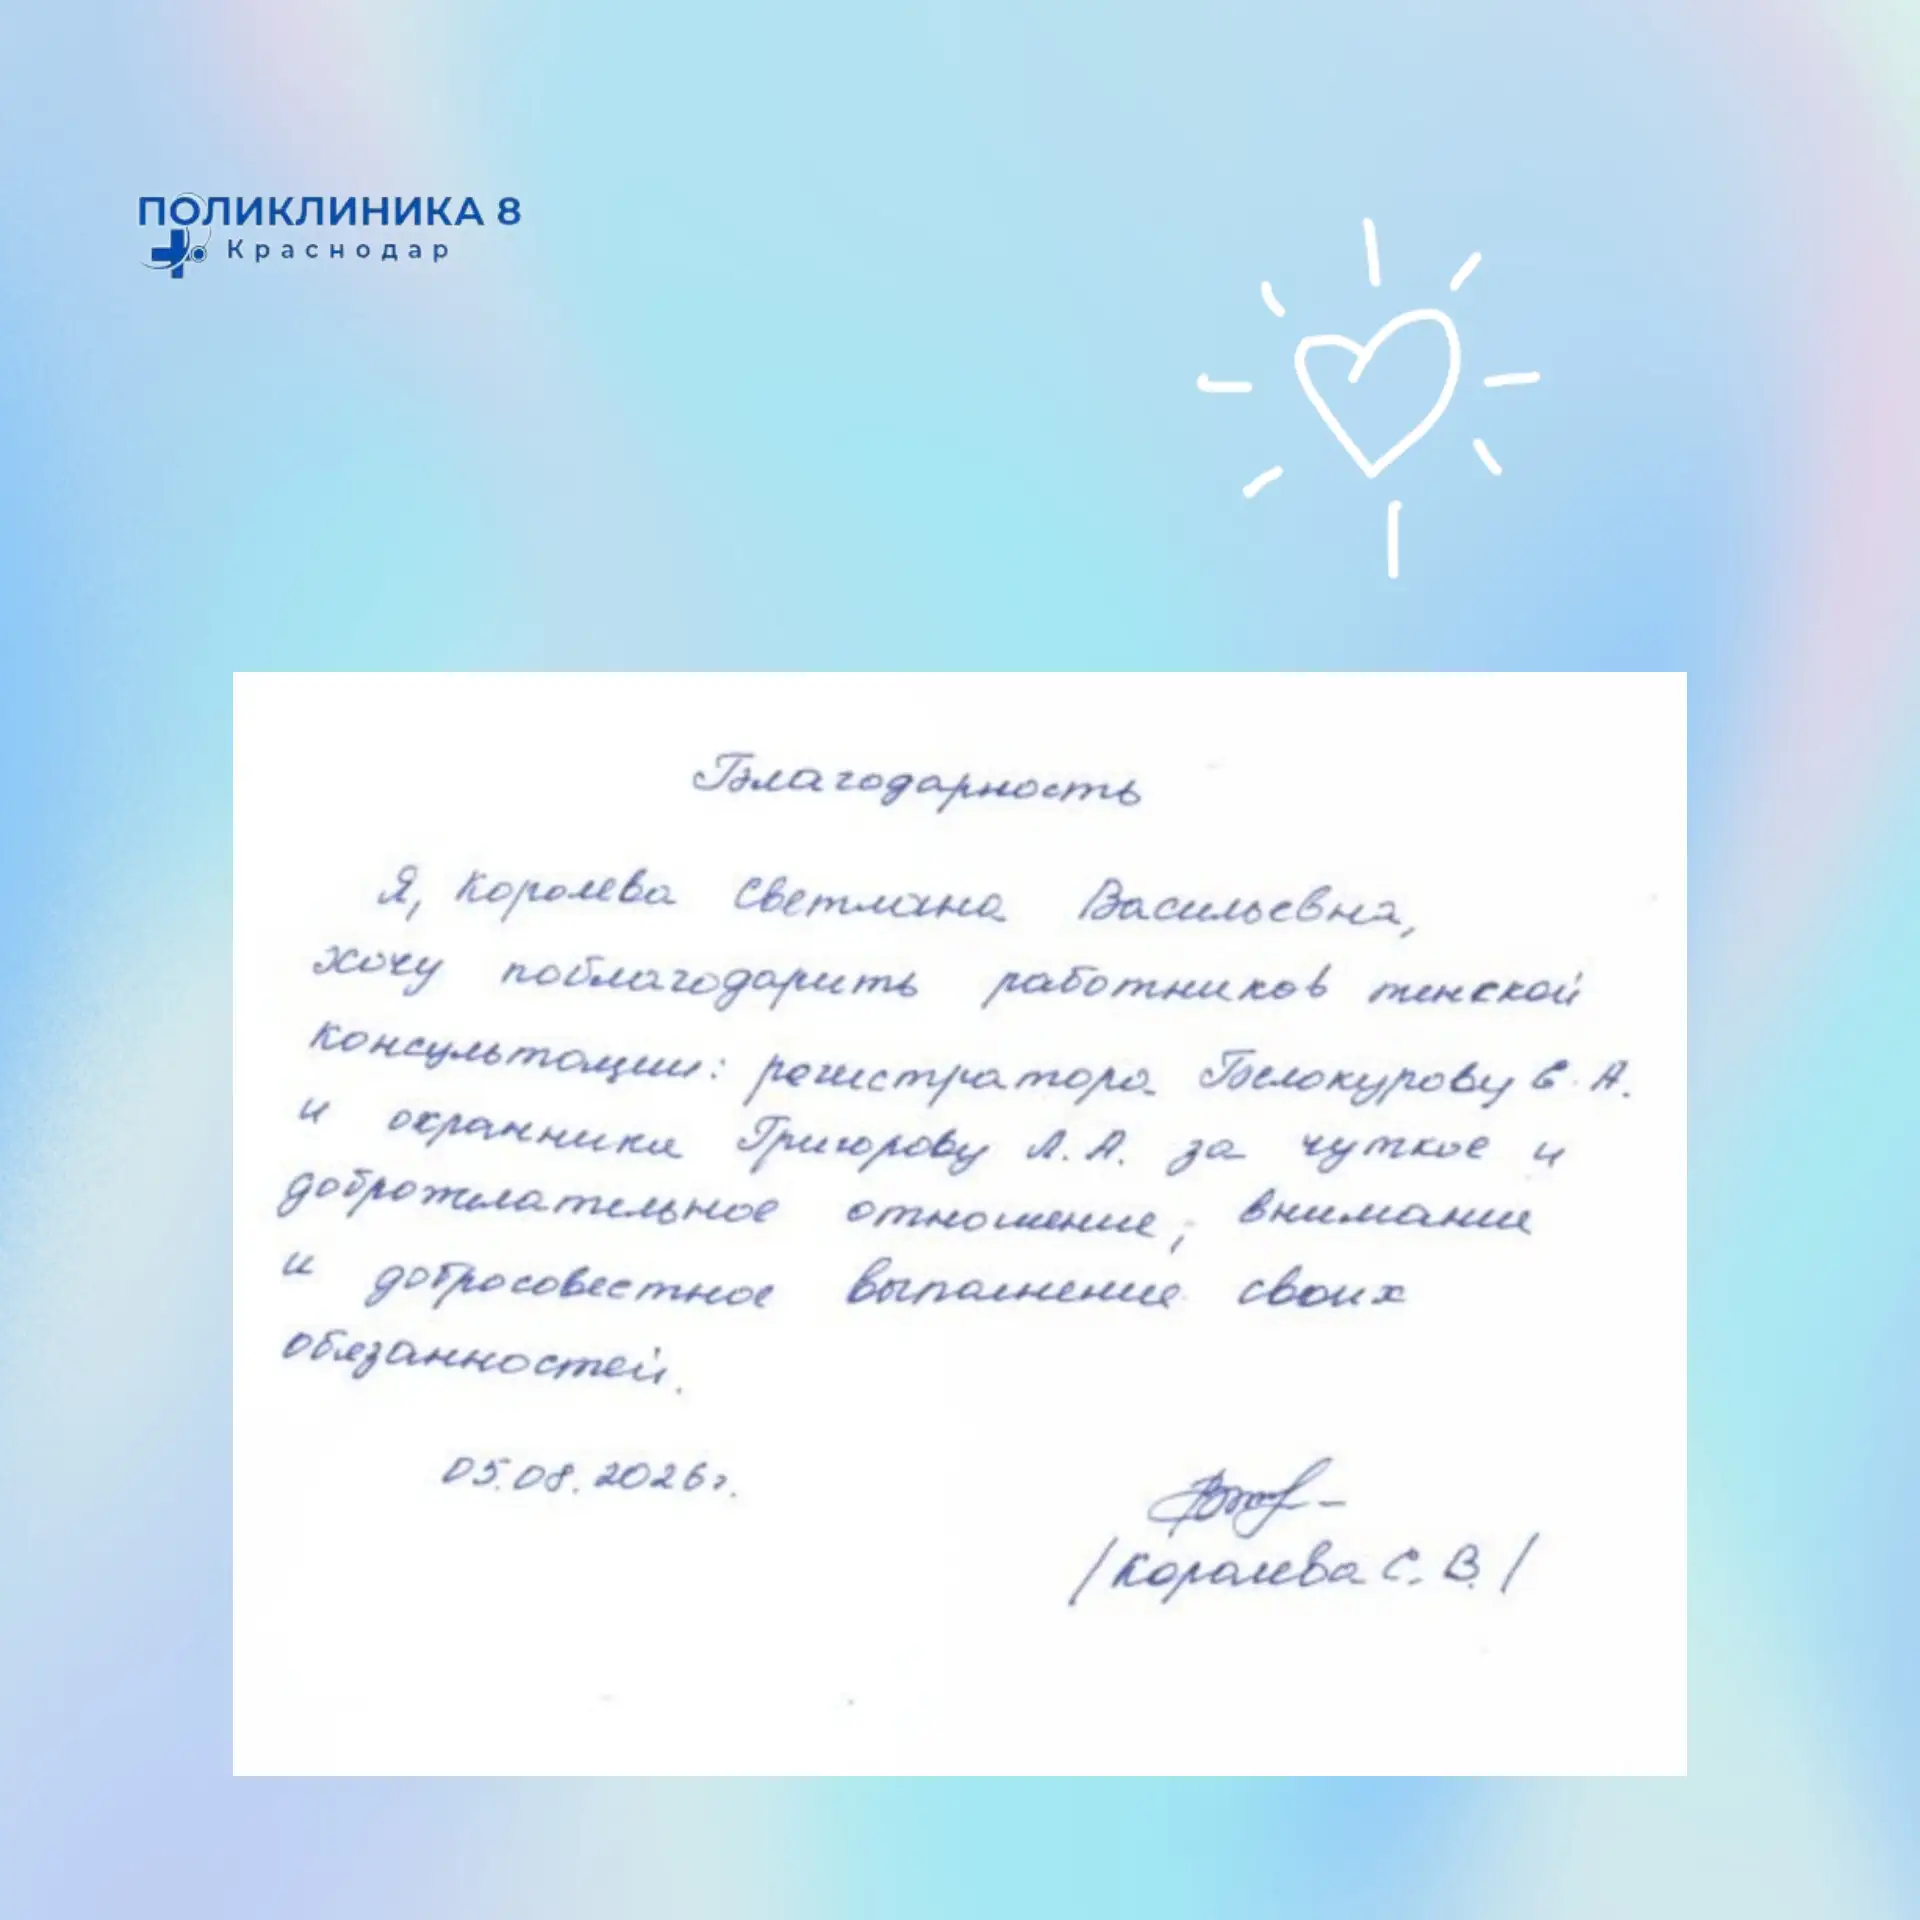 ПОЛИКЛИНИКА 8
Краснодар
Благодарность
Я, Королева Светлана Васильевна,
хочу поблагодарить работников женской
консультации: регистратора Белокурову С. А.
и охранника Григорову Л. А. за чуткое и
доброжелательное отношение, внимание
и добросовестное выполнение своих
обязанностей.
05.08.2026г.
/Королева С. В./